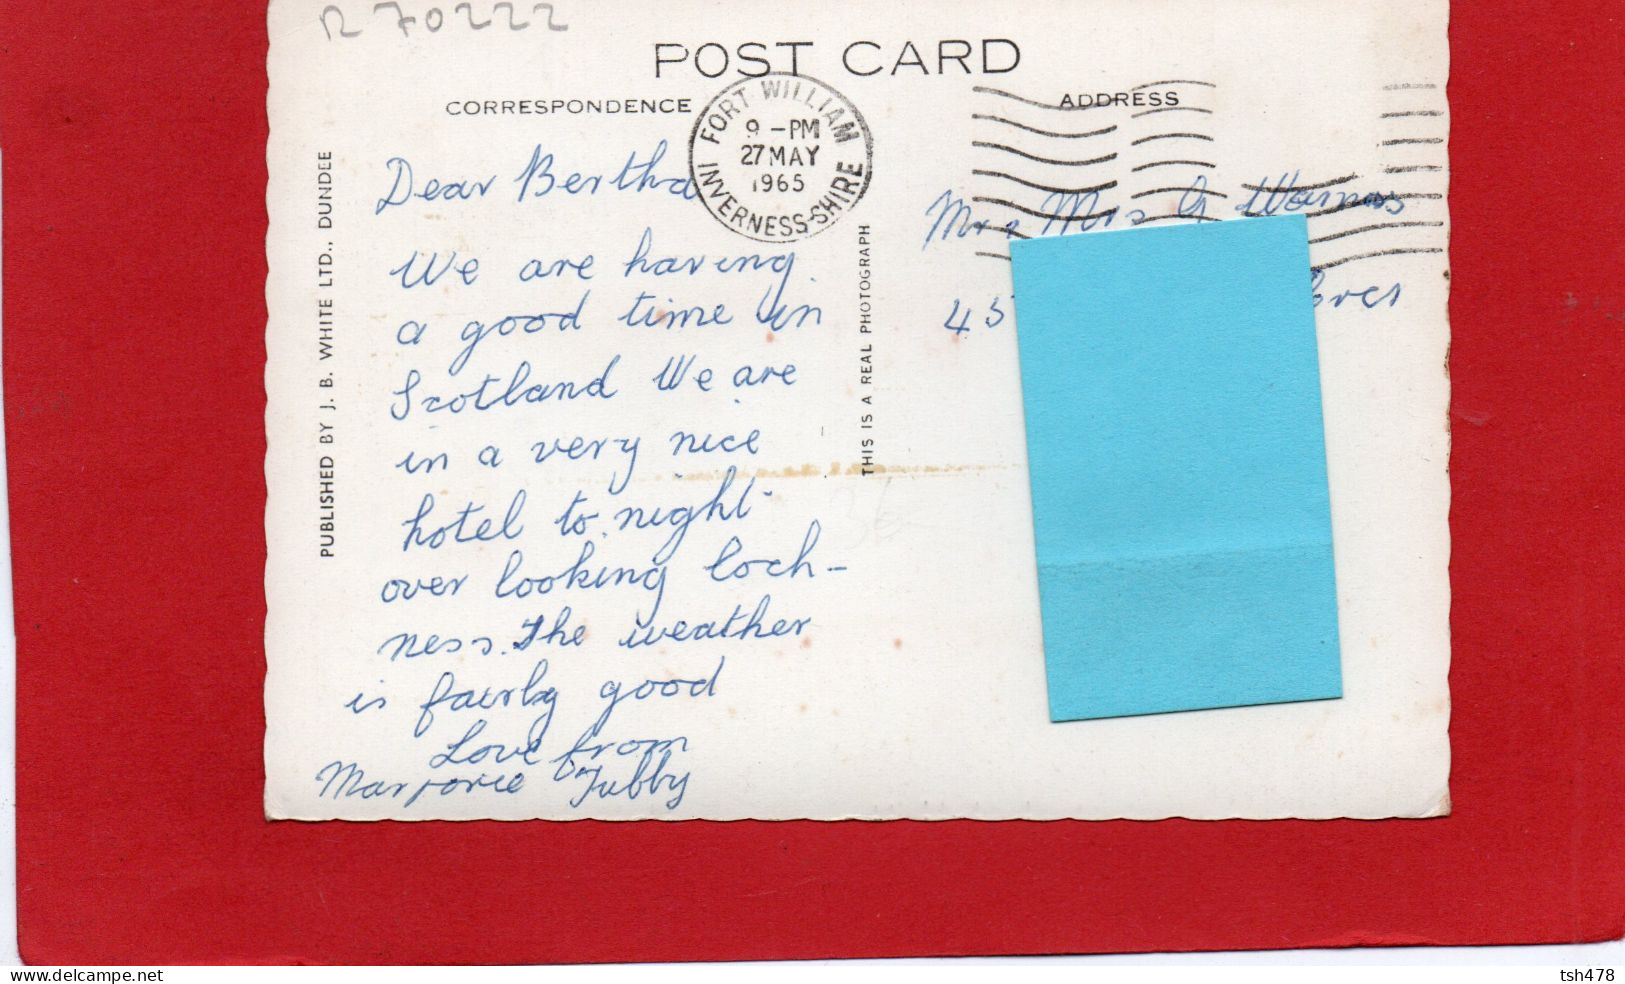 R 70222
POST CARD
CORRESPONDENCE
ADDRESS
FORT WILLIAM
9 - PM
27 MAY
1965
INVERNESS-SHIRE
PUBLISHED BY J. B. WHITE LTD., DUNDEE
THIS IS A REAL PHOTOGRAPH
Dear Bertha
We are having
a good time in
Scotland We are
in a very nice
hotel to night
over looking loch-
ness. The weather
is fairly good
Love from
Marjorie Tubby
Mrs G
36
www.delcampe.net
tsh478